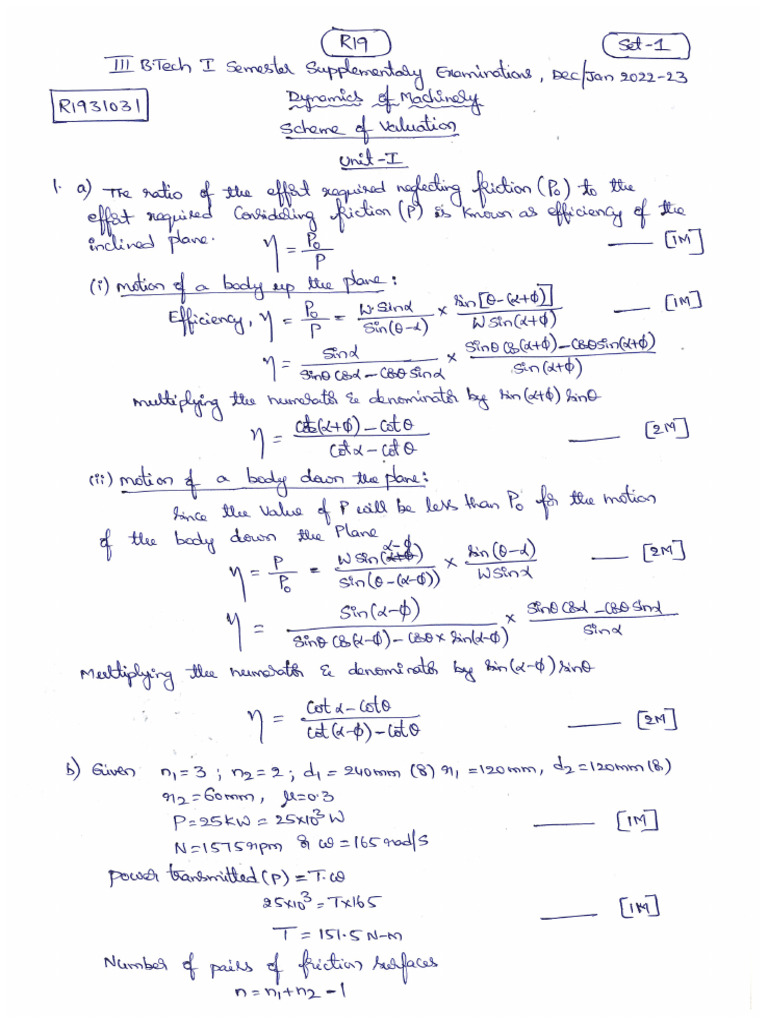 R19
Set-1
III B.Tech I Semester Supplementary Examinations, Dec/Jan 2022-23
R1931031
Dynamics of Machinery
Scheme of Valuation
Unit-I
1. a) The ratio of the effort required neglecting friction (P₀) to the
effort required Considering friction (P) is known as efficiency of the
inclined plane. η = P₀/P — [1M]
(i) motion of a body up the plane:
Efficiency, η = P₀/P = W Sinα / Sin(θ-α) × Sin[θ-(α+φ)] / W Sin(α+φ) — [1M]
η = Sinα / (Sinθ Cosα - Cosθ Sinα) × (Sinθ Cos(α+φ) - Cosθ Sin(α+φ)) / Sin(α+φ)
multiplying the numerator & denominator by Sin(α+φ) Sinθ
η = (Cot(α+φ) - Cotθ) / (Cotα - Cotθ) — [2M]
(ii) motion of a body down the plane:
Since the value of P will be less than P₀ for the motion
of the body down the Plane
η = P/P₀ = W Sin(α-φ) / Sin(θ-(α-φ)) × Sin(θ-α) / W Sinα — [2M]
η = Sin(α-φ) / (Sinθ Cos(α-φ) - Cosθ × Sin(α-φ)) × (Sinθ Cosα - Cosθ Sinα) / Sinα
Multiplying the numerator & denominator by Sin(α-φ) Sinθ
η = (Cotα - Cotθ) / (Cot(α-φ) - Cotθ) — [2M]
b) Given n₁=3 ; n₂=2 ; d₁=240mm (or) r₁=120mm, d₂=120mm (or)
r₂=60mm, μ=0.3
P=25KW = 25×10³ W — [1M]
N=1575rpm or ω=165 rad/s
power transmitted (P) = T.ω
25×10³ = T×165 — [1M]
T = 151.5 N-m
Number of pairs of friction surfaces
n = n₁+n₂-1